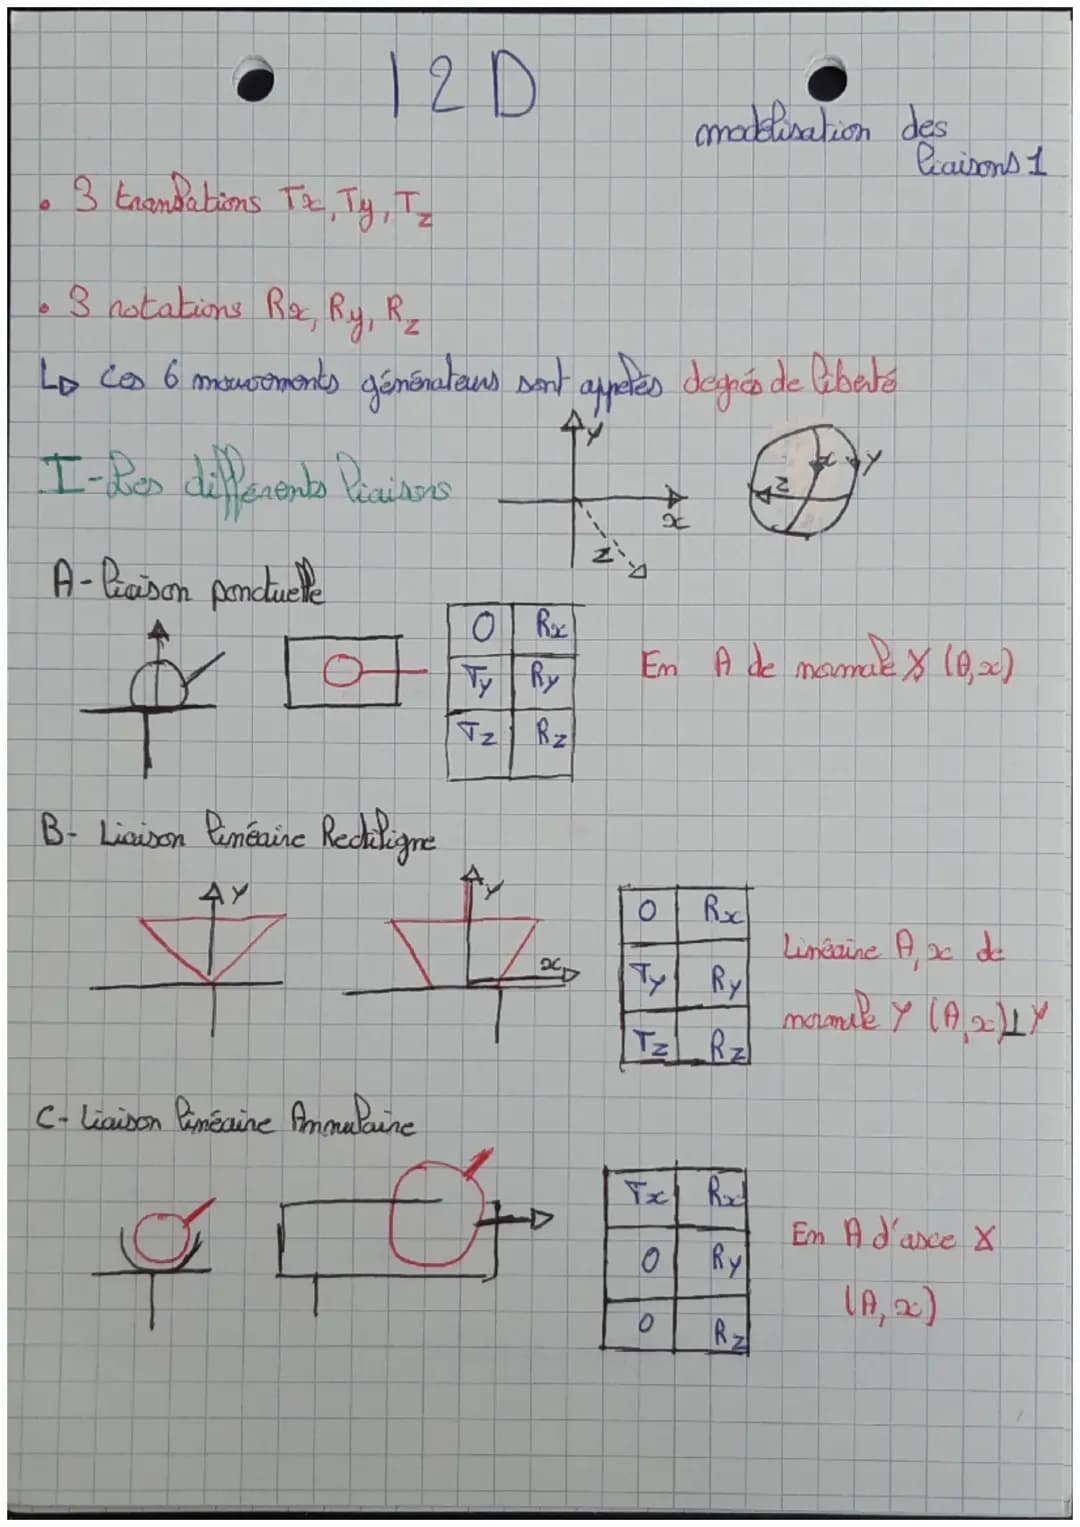 I2D
modélisation des
liaisons 1
• 3 translations Tx, Ty, Tz
• 3 rotations Rx, Ry, Rz
Ces 6 mouvements générateurs sont appelés degrés de liberté
I-Les différents liaisons
y
x
z
x
y
z
A-liaison ponctuelle
0 Rx
Ty Ry
Tz Rz
En A de normale X (A,x)
B- Liaison linéaire Rectiligne
y
y
x
0 Rx
Ty Ry
Tz Rz
Linéaire A,x de
normale Y (A,x)⊥Y
C-Liaison linéaire Annulaire
Tx Rx
0 Ry
0 Rz
En A d'axe X
(A,x)